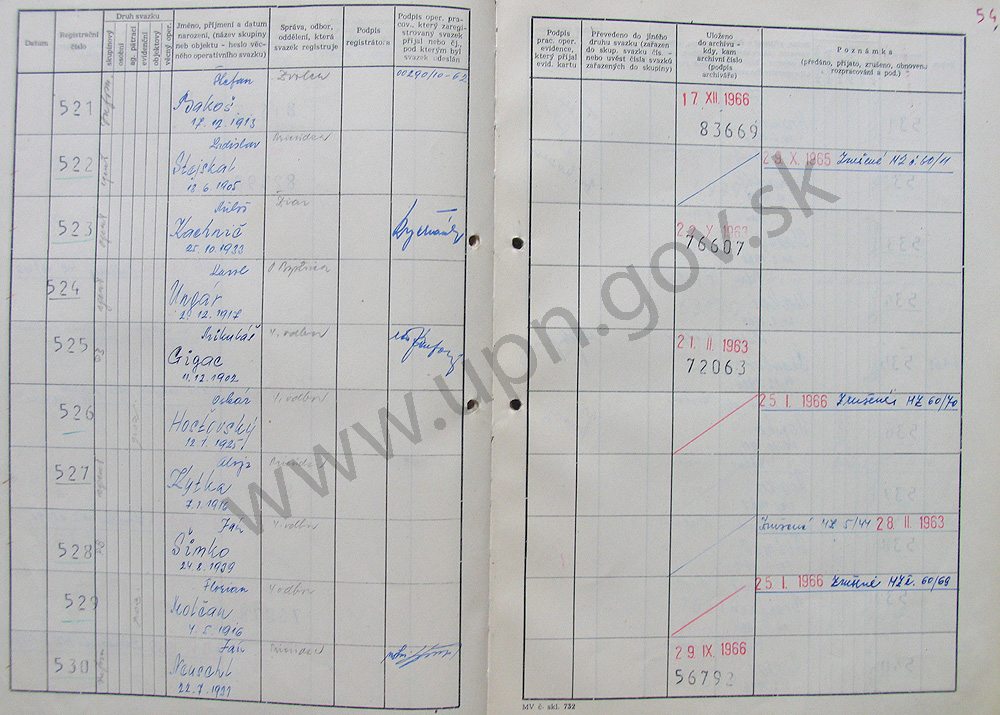 54
Datum
Registrační číslo
Druh svazku
skupinový
osobní
ag. pátrací
evidenční
objektový
věcný oper.
Jméno, příjmení a datum
narození, (název skupiny
neb objektu - heslo věc-
ného operativního svazku)
Správa, odbor,
oddělení, která
svazek registruje
Podpis
registrátora
Podpis oper. pra-
cov., který zareg-
istrovaný svazek
přijal nebo čj.,
pod kterým byl
svazek odeslán
Podpis
prac. oper.
evidence,
který přijal
evid. kartu
Převedeno do jiného
druhu svazku (zařazen
do skup. svazku čís. -
nebo uvést čísla svazků
zařazených do skupiny)
Uloženo
do archivu -
kdy, kam
archivní číslo
(podpis
archiváře)
Poznámka
(předáno, přijato, zrušeno, obnoveno
rozpracování a pod.)
521
Štefan
Bakoš
17.12.1913
Zvolen
00290/10-62
17 XII. 1966
83669
522
Ladislav
Stejskal
18.6.1905
Prievidza
X. 1965 Zrušené NZ č 60/11
523
Miloš
Kachnič
25.10.1933
Žiar
X. 1963
76607
524
Ungár
2.12.1917
B Bystrica
525
Mikuláš
Gigac
11.12.1902
4. odbor
21. II. 1963
72063
526
Oskár
Hošťovský
12.1.1925
1. odbor
25 I. 1966 Zrušené NZ 60/70
527
Alojz
Kytka
7.1.1916
Prievidza
528
Ján
Šimko
24.8.1939
4. odbor
Zrušené NZ 5/44 28 II. 1963
529
Florian
Molčan
4.5.1916
4. odbor
25 I. 1966 Zrušené NZ č. 60/69
530
Ján
Neuschl
22.7.1927
Prievidza
29. IX. 1966
56792
MV č. skl. 752
www.upn.gov.sk